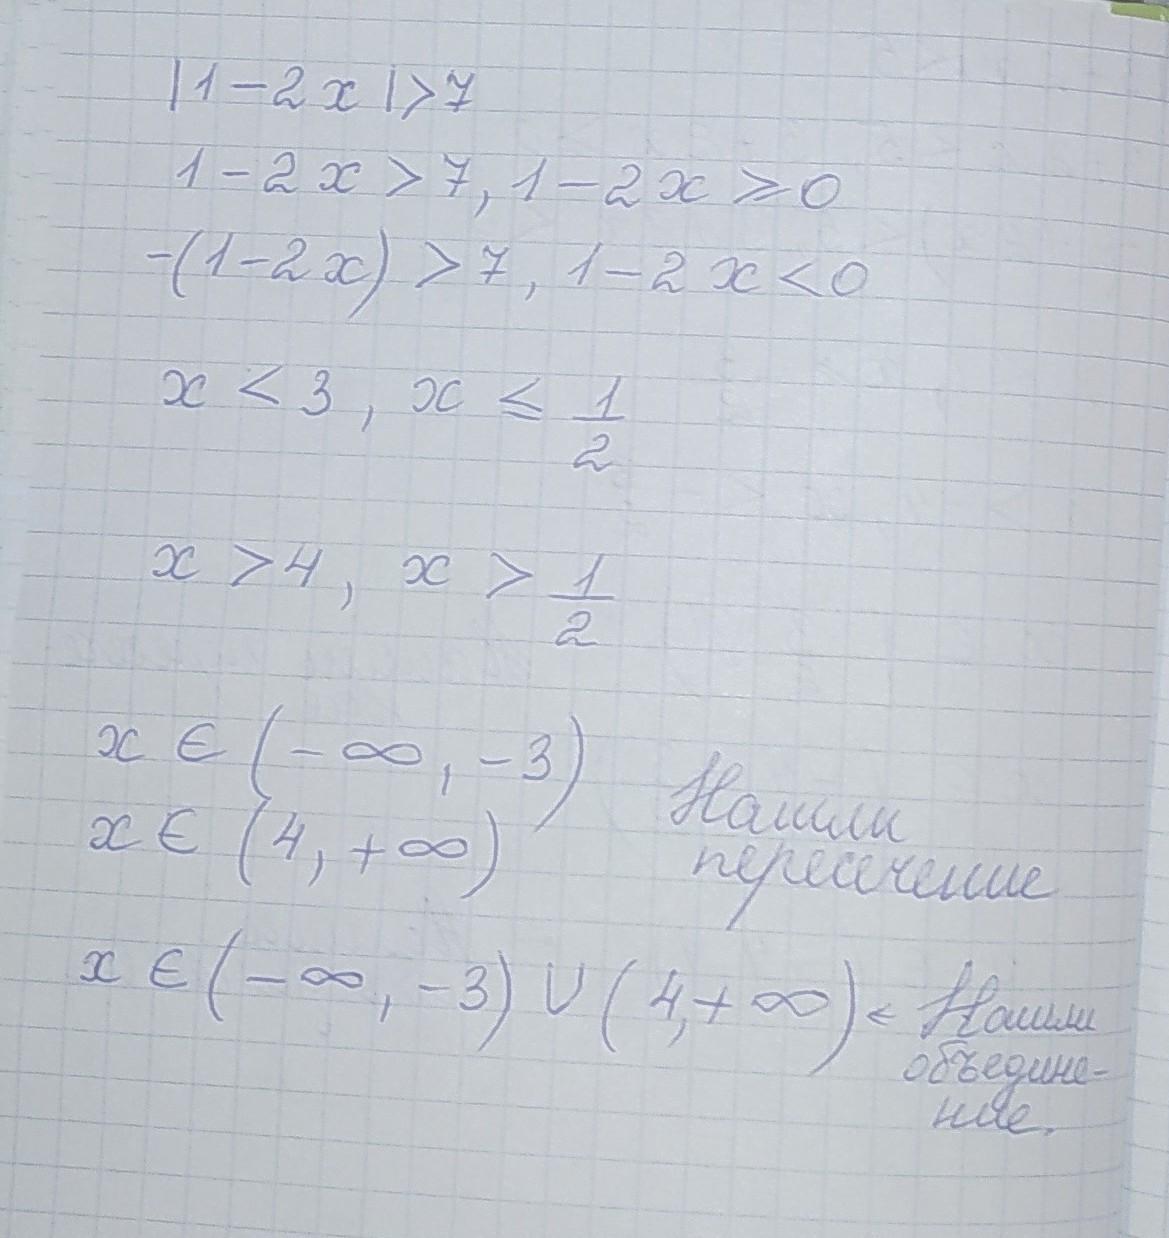 |1-2x|>7
1-2x>7, 1-2x⩾0
-(1-2x)>7, 1-2x<0
x<3, x≤1/2
x>4, x>1/2
x∈(-∞,-3)
x∈(4,+∞)
Нашли
пересечение
x∈(-∞,-3)∪(4,+∞)< Нашли
объедине-
ние.